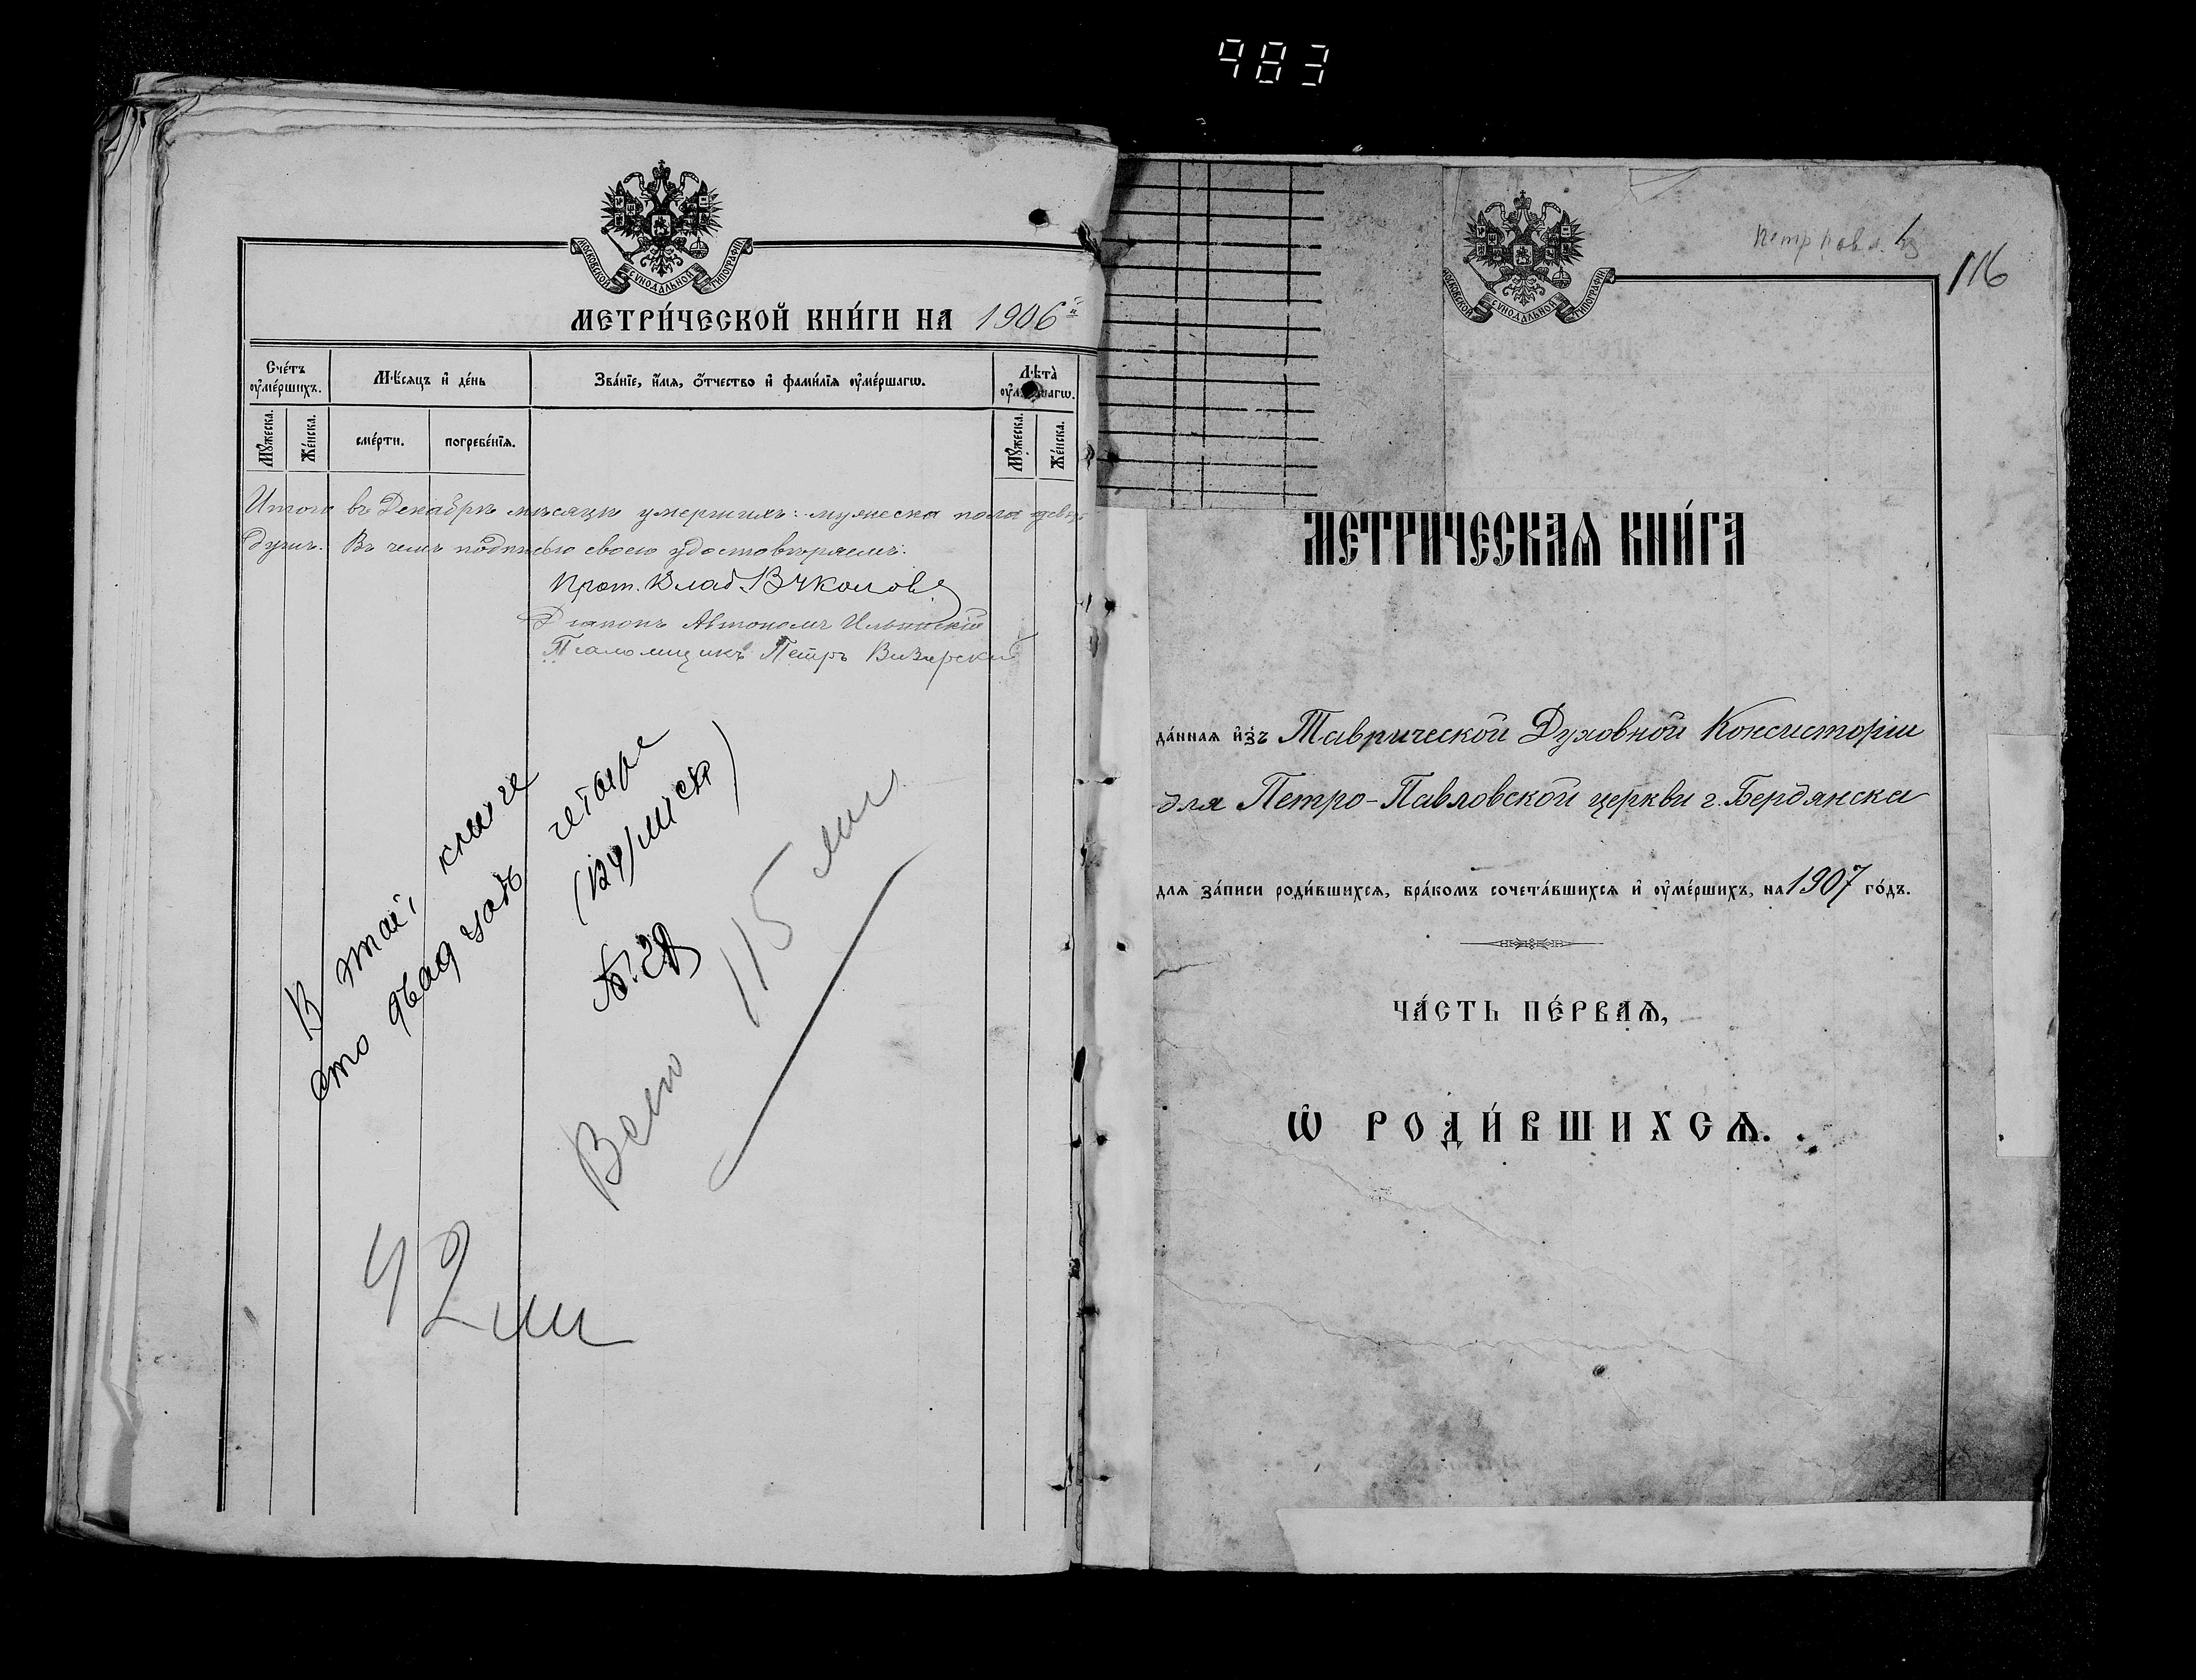 983
МОСКОВСКОЙ СѴНОДАЛЬНОЙ ТИПОГРАФІИ
МЕТРИ́ЧЕСКОЙ КНИ́ГИ НА 1906
Сче́тъ оу҆ме́ршихъ.
Мѣ́сяцъ и҆ де́нь
Зва́нїе, и҆́мя, ѻ҆́тчество и҆ фами́лїя оу҆ме́ршагѡ.
Лѣта̀
Мꙋ́жеска.
Же́нска.
сме́рти.
погребе́нїя.
Мꙋ́жеска.
Же́нска.
Итого въ Декабрѣ мѣсяцѣ умершихъ: мужеска пола
душъ. Въ чемъ подписью своею удостовѣряемъ:
Прот. Влад.
Діаконъ Автономъ Ильинскій
Псаломщикъ Петръ
В этой книге
сто двадцать четыре
(124) листа
Всего 115 лис
42 лис
Петр Павл.
116
МОСКОВСКОЙ СѴНОДАЛЬНОЙ ТИПОГРАФІИ
МЕТРИЧЕСКАѦ КНИ́ГА
да́нная и҆зъ Таврической Духовной Консисторіи
для Петро-Павловской церкви г. Бердянска
для за́писи роди́вшихся, бра́комъ сочета́вшихся и҆ оу҆ме́ршихъ, на 1907 го́дъ.
ЧА́СТЬ ПЕ́РВАѦ,
Ѡ҆ РОДИ́ВШИХСѦ.